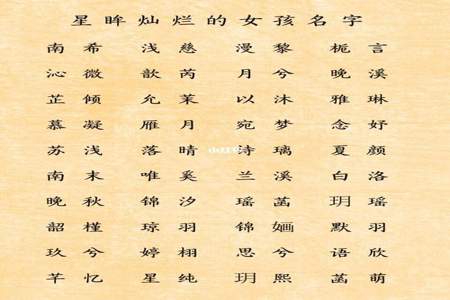 星眸灿烂的女孩名字
南希 浅慈 漫黎 栀言
沁微 歆芮 月兮 晚溪
芷倾 允茉 以沐 雅琳
慕凝 雁月 宛梦 念妤
苏浅 落晴 诗璃 夏颜
南末 唯奚 兰溪 白洛
晚秋 锦汐 瑶菡 玥瑶
韶槿 琼羽 锦婳 默羽
玖兮 婷栩 思兮 语欣
芊忆 星纯 玥熙 菡萌